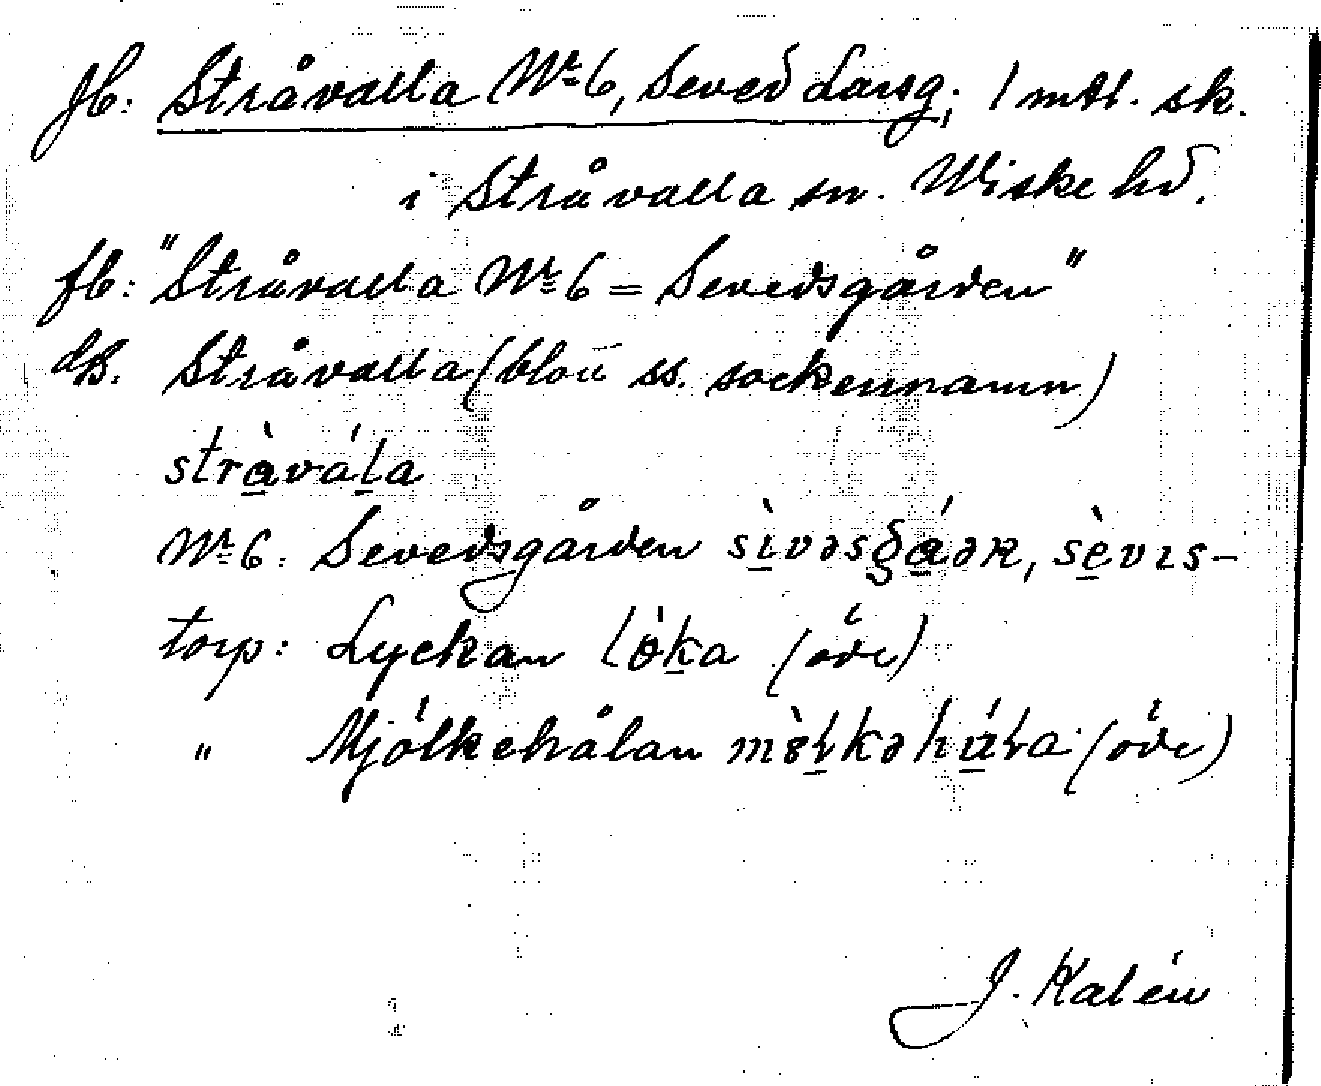 Jb: Stråvalla Nr 6, Seved Larsg; 1 mtl. sk.
i Stråvalla sn. Wiske hd.
fb: "Stråvalla Nr 6 = Sevedsgården"
ds. Stråvalla (blott ss. sockennamn)
strà̱vála̱a
Nr 6. Sevedsgården sì̱vəsgá̱əʀ, sè̱vɪs-
torp: Lyckan lö̱̀ka (öde)
" Mjölkehålan mö̀lkəhála (öde)
J. Kalén